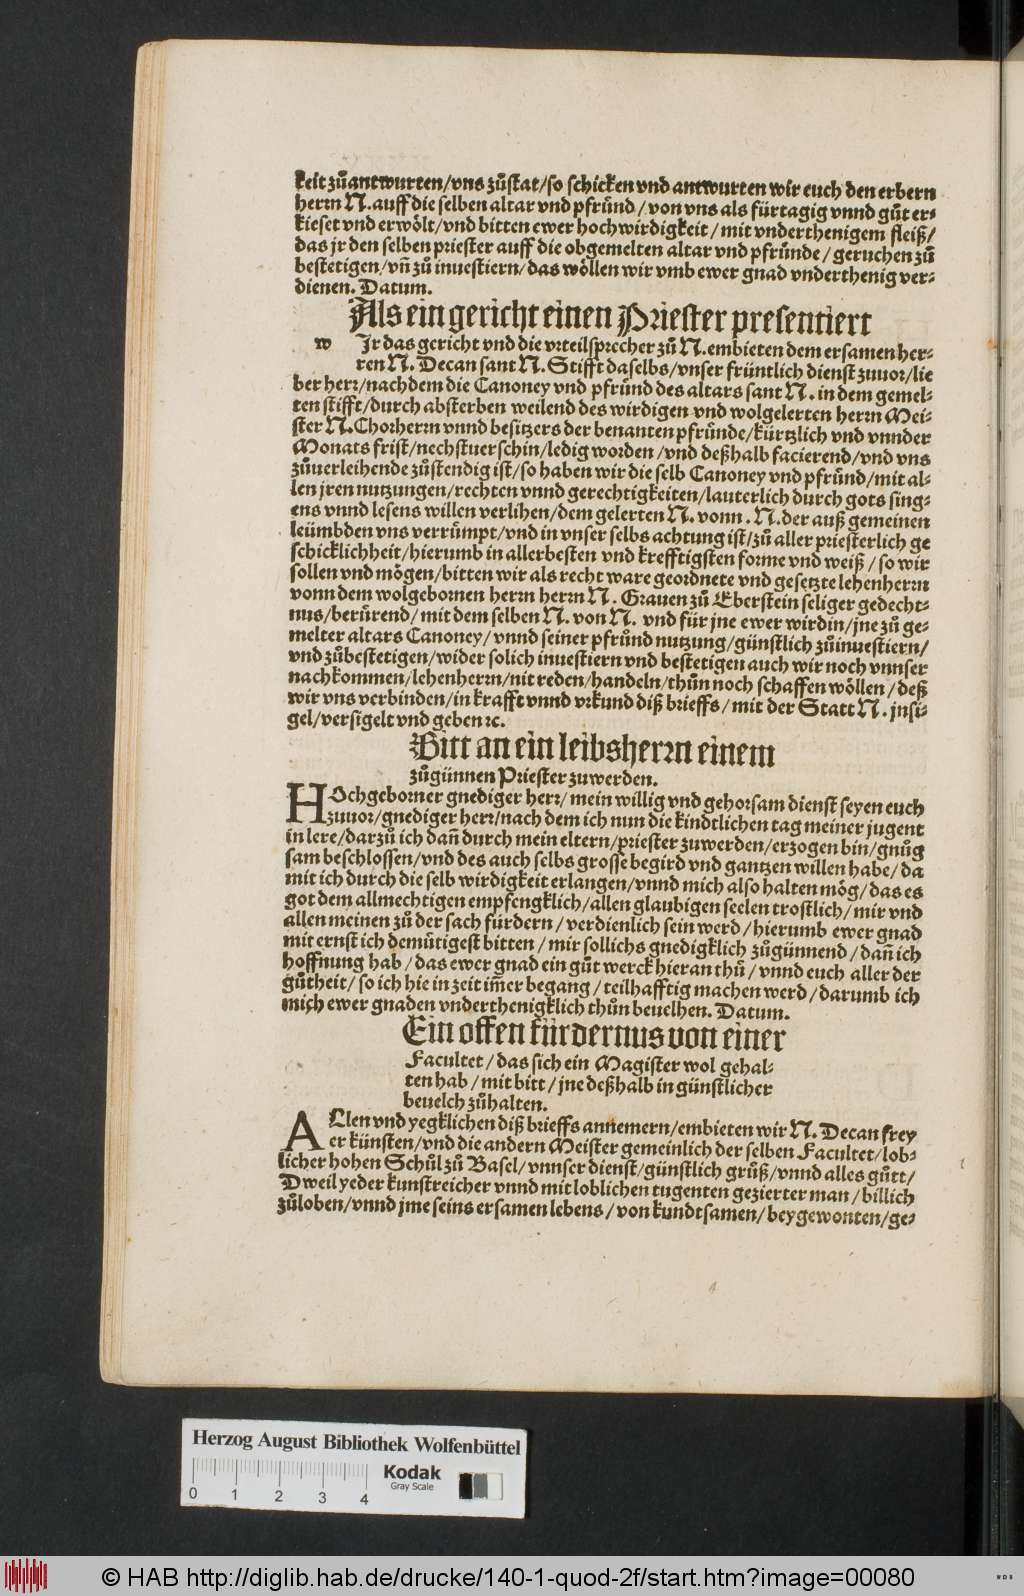 keit zůantwurten/vns zůstat/so schicken vnd antwurten wir euch den erbern
herrn N.auff die selben altar vnd pfrůnd/von vns als fürtagig vnnd gůt er⸗
kieset vnd erwölt/vnd bitten ewer hochwirdigkeit/mit vnderthenigem fleiß/
das jr den selben priester auff die obgemelten altar vnd pfrůnde/geruchen zů
bestetigen/vñ zů inuestiern/das wöllen wir vmb ewer gnad vnderthenig ver⸗
dienen. Datum.
Als ein gericht einen Priester presentiert
w Ir das gericht vnd die vrteilsprecher zů N.embieten dem ersamen her⸗
ren N. Decan sant N. Stifft daselbs/vnser früntlich dienst zuuor/lie
ber herr/nachdem die Canoney vnd pfrůnd des altars sant N. in dem gemel⸗
ten stifft/durch absterben weilend des wirdigen vnd wolgelerten herrn Mei⸗
ster N.Chorherrn vnnd besitzers der benanten pfrůnde/kürtzlich vnd vnnder
Monats frist/nechstuerschin/ledig worden/vnd deßhalb facierend/vnd vns
zůuerleihende zůstendig ist/so haben wir die selb Canoney vnd pfrůnd/mit al⸗
len jren nutzungen/rechten vnnd gerechtigkeiten/lauterlich durch gots sing⸗
ens vnnd lesens willen verlihen/dem gelerten N. vonn . N.der auß gemeinen
leümbden vns verrümpt/vnd in vnser selbs achtung ist/zů aller priesterlich ge
schicklichheit/hierumb in allerbesten vnd krefftigsten forme vnd weiß/so wir
sollen vnd mögen/bitten wir als recht ware geordnete vnd gesetzte lehenherrn
vonn dem wolgebornen herrn herrn N. Grauen zů Eberstein seliger gedecht⸗
nus/berůrend/mit dem selben N. von N. vnd für jne ewer wirdin/jne zů ge⸗
melter altars Canoney/vnnd seiner pfrůnd nutzung/günstlich zůinuestiern/
vnd zůbestetigen/wider solich inuestiern vnd bestetigen auch wir noch vnnser
nachkommen/lehenherrn/nit reden/handeln/thůn noch schaffen wöllen/deß
wir vns verbinden/in krafft vnnd vrkund diß brieffs/mit der Statt N. jnsi⸗
gel/versigelt vnd geben ꝛc.
Bitt an ein leibsherrn einem
zůgünnen Priester zuwerden.
HOchgeborner gnediger herr/mein willig vnd gehorsam dienst seyen euch
zuuor/gnediger herr/nach dem ich nun die kindtlichen tag meiner jugent
in lere/darzů ich dañ durch mein eltern/priester zuwerden/erzogen bin/gnůg
sam beschlossen/vnd des auch selbs grosse begird vnd gantzen willen habe/da
mit ich durch die selb wirdigkeit erlangen/vnnd mich also halten mög/das es
got dem allmechtigen empfengklich/allen glaubigen seelen trostlich/mir vnd
allen meinen zů der sach fürdern/verdienlich sein werd/hierumb ewer gnad
mit ernst ich demütigest bitten/mir sollichs gnedigklich zůgünnend/dañ ich
hoffnung hab/das ewer gnad ein gůt werck hieran thů/vnnd euch aller der
gůtheit/so ich hie in zeit im̃er begang/teilhafftig machen werd/darumb ich
mich ewer gnaden vnderthenigklich thůn beuelhen. Datum.
Ein offen fürdernus von einer
Facultet/das sich ein Magister wol gehal⸗
ten hab/mit bitt/jne deßhalb in günstlicher
beuelch zůhalten.
ALlen vnd yegklichen diß brieffs annemern/embieten wir N. Decan frey
er künsten/vnd die andern Meister gemeinlich der selben Facultet/lob⸗
licher hohen Schůl zů Basel/vnnser dienst/günstlich grůß/vnnd alles gůtt/
Dweil yeder kunstreicher vnnd mit loblichen tugenten gezierter man/billich
zůloben/vnnd jme seins ersamen lebens/von kundtsamen/beygewonten/ge⸗
Herzog August Bibliothek Wolfenbüttel
0 1 2 3 4
Kodak
Gray Scale
© HAB http://diglib.hab.de/drucke/140-1-quod-2f/start.htm?image=00080